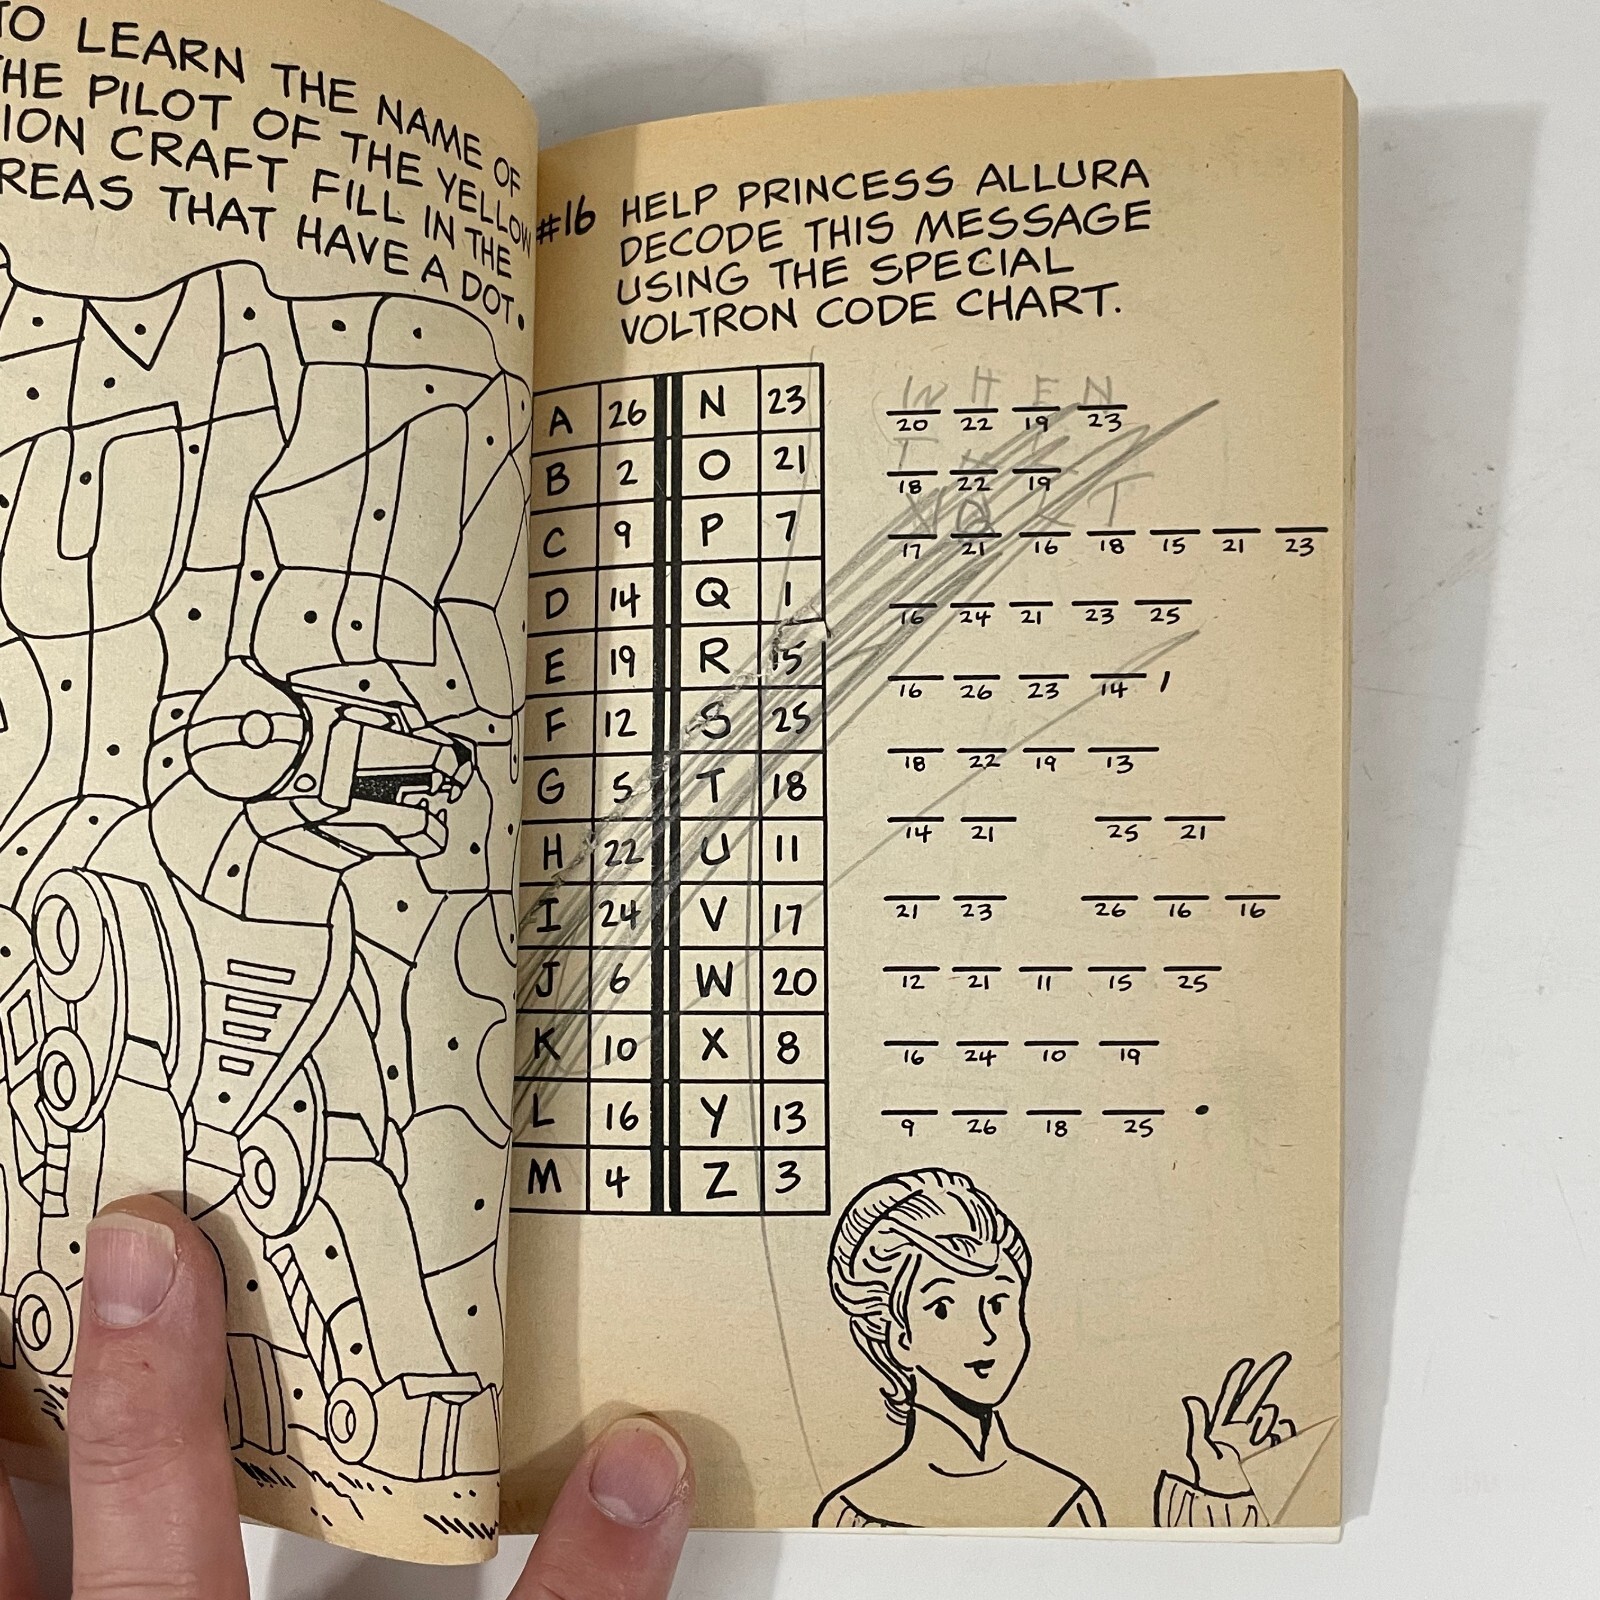 TO LEARN THE NAME OF
THE PILOT OF THE YELLOW
ION CRAFT FILL IN THE
REAS THAT HAVE A DOT.
#16 HELP PRINCESS ALLURA
DECODE THIS MESSAGE
USING THE SPECIAL
VOLTRON CODE CHART.
A 26 N 23
B 2 O 21
C 9 P 7
D 14 Q 1
E 19 R 15
F 12 S 25
G 5 T 18
H 22 U 11
I 24 V 17
J 6 W 20
K 10 X 8
L 16 Y 13
M 4 Z 3
W H E N
20 22 19 23
T H E
18 22 19
V O L T
17 21 16 18 15 21 23
16 24 21 23 25
16 26 23 14 ,
18 22 19 13
14 21 25 21
21 23 26 16 16
12 21 11 15 25
16 24 10 19
9 26 18 25 .